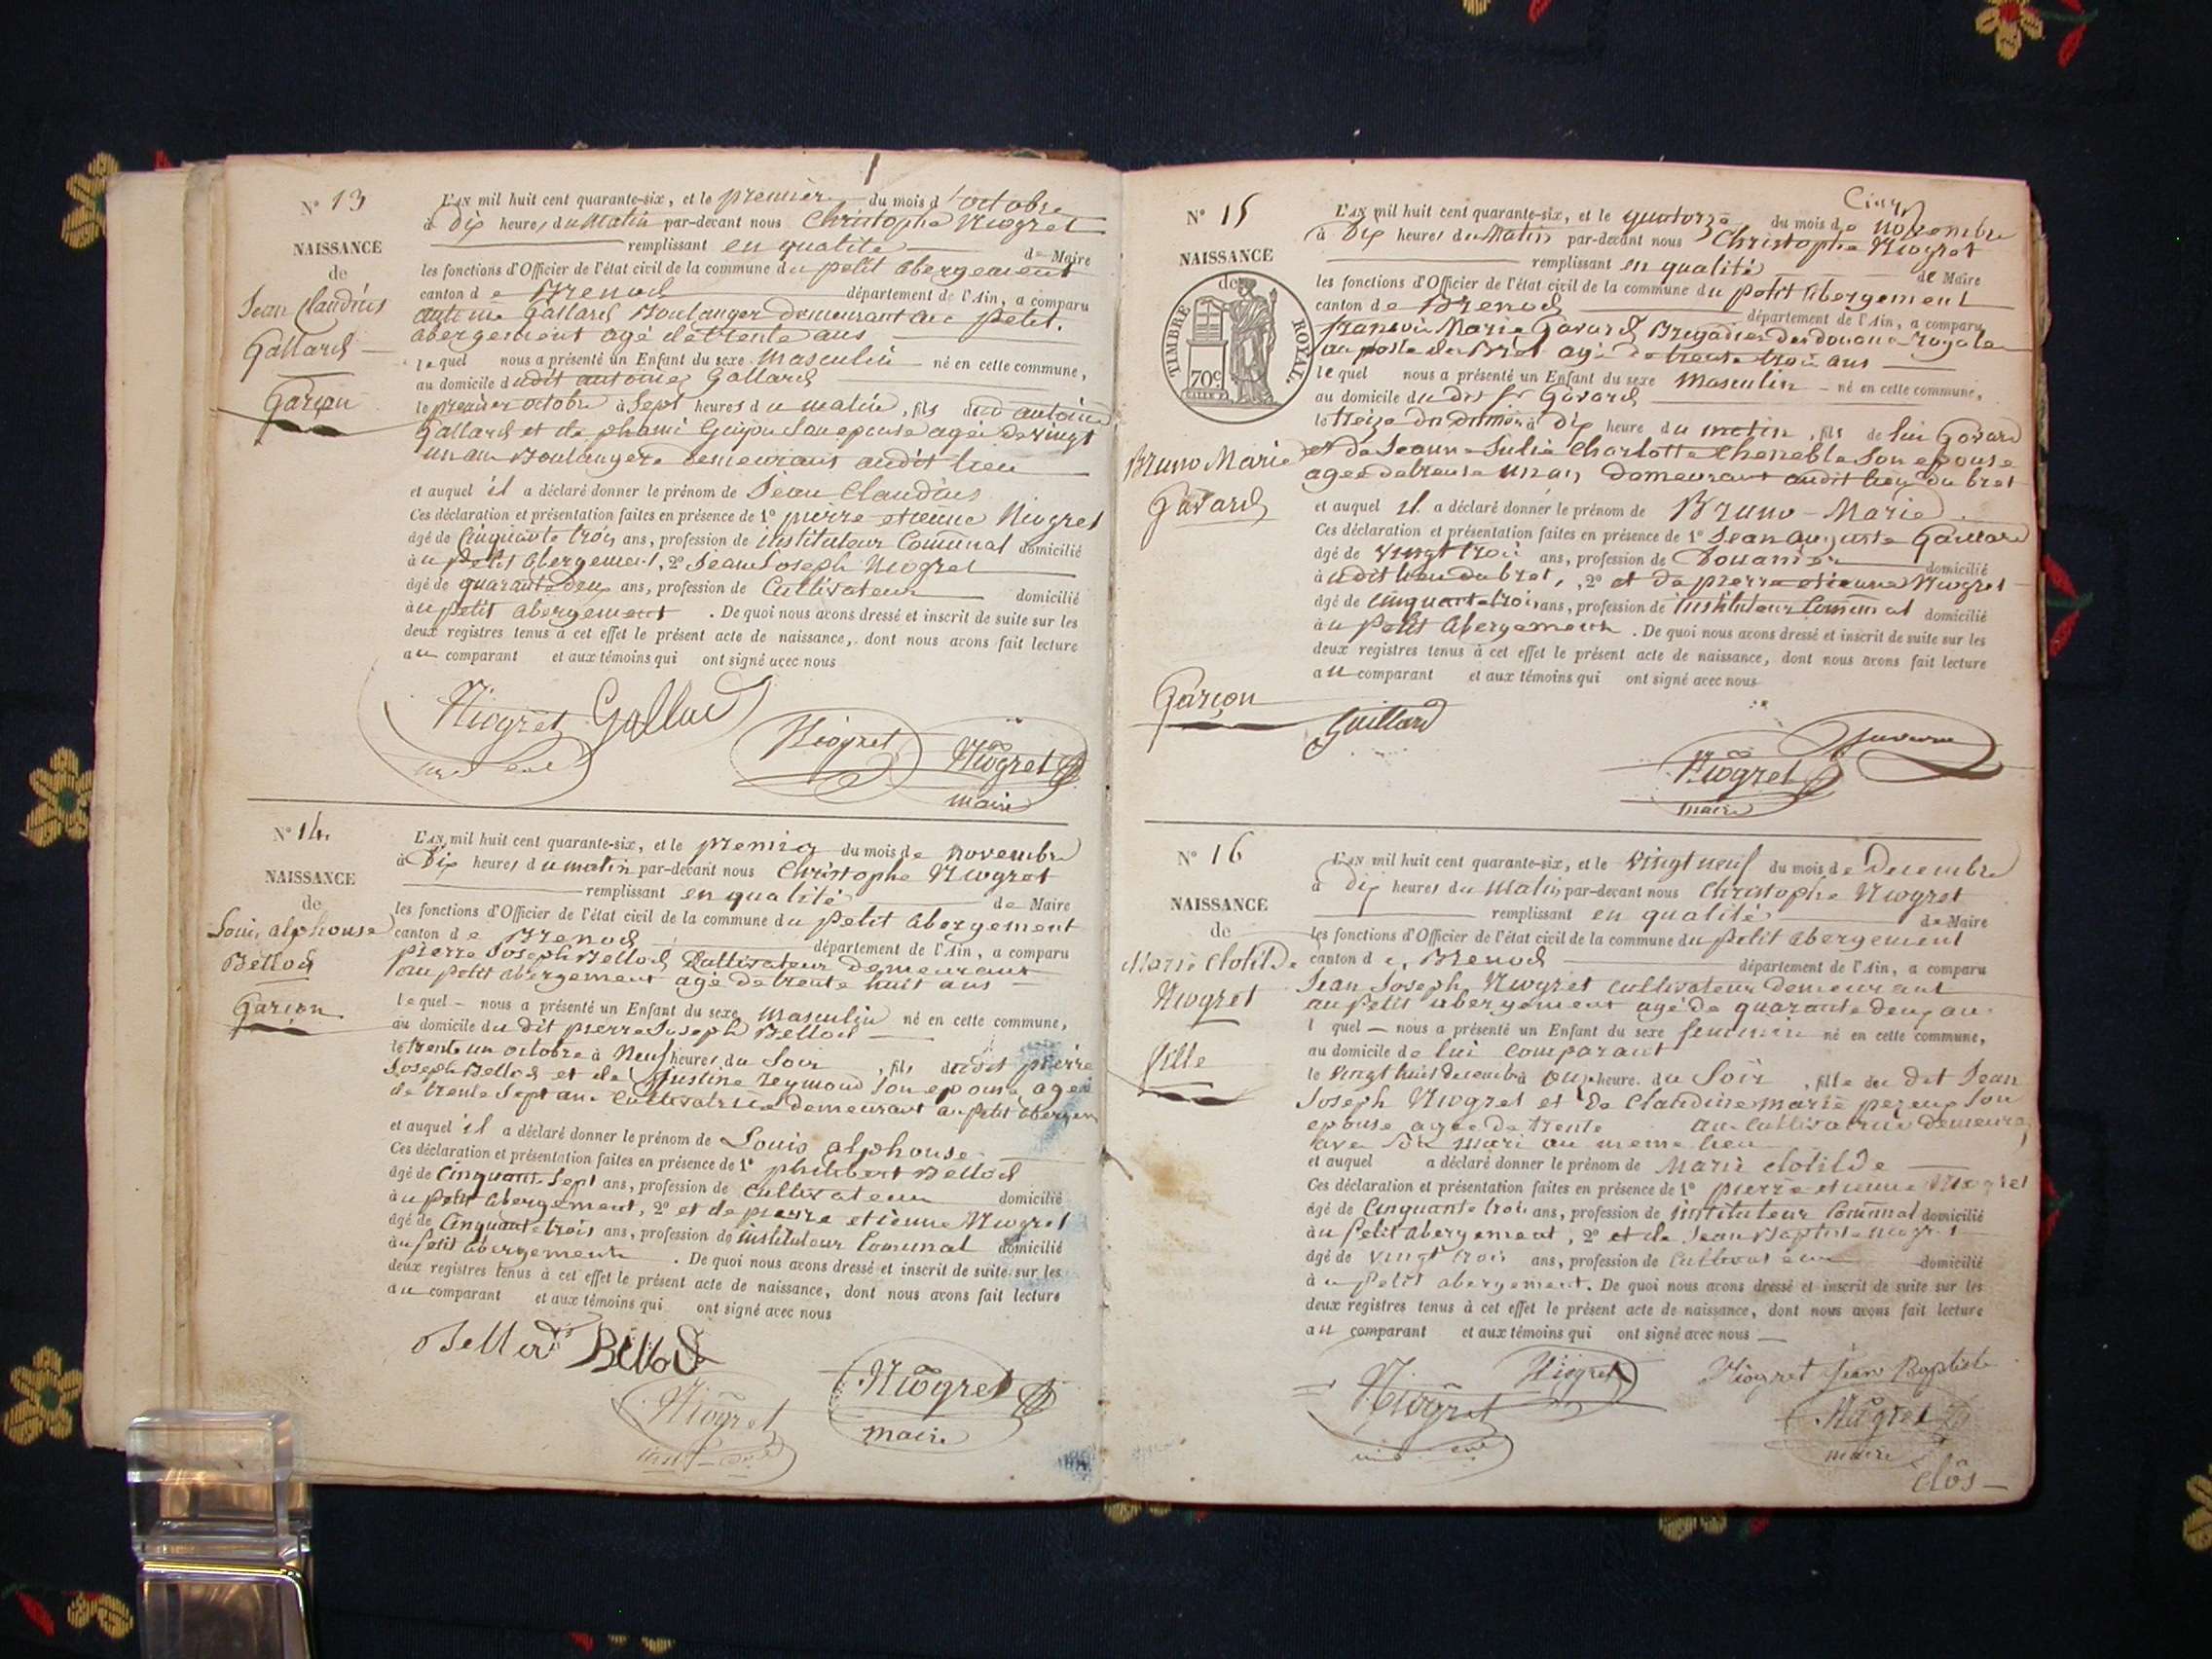 N° 13
NAISSANCE
de
Jean Claudius
Gallard
Garçon
L'AN mil huit cent quarante-six, et le premier du mois d'octobre
à Dix heures du Matin par-devant nous Christophe Niogret
remplissant en qualité de Maire
les fonctions d'Officier de l'état civil de la commune du petit abergement
canton de Brenod département de l'Ain, a comparu
antoine Gallard Boulanger demeurant au petit
abergement agé de trente ans
lequel nous a présenté un Enfant du sexe Masculin né en cette commune,
au domicile dudit antoine Gallard
le premier octobre à Sept heures du matin, fils dud antoine
Gallard et de Guyon Son epouse agée de vingt
un ans Boulangere demeurant audit lieu
et auquel il a déclaré donner le prénom de Jean Claudius
Ces déclaration et présentation faites en présence de 1° pierre etienne Niogret
âgé de Cinquante trois ans, profession de instituteur Communal domicilié
à au petit abergement, 2° Jean Joseph Niogret
âgé de quarante Deux ans, profession de Cultivateur domicilié
à au petit abergement. De quoi nous avons dressé et inscrit de suite sur les
deux registres tenus à cet effet le présent acte de naissance, dont nous avons fait lecture
au comparant et aux témoins qui ont signé avec nous
Niogret Gallard
Niogret Niogret
maire
N° 14
NAISSANCE
de
Louis alphonse
Bellod
Garçon
L'AN mil huit cent quarante-six, et le premier du mois de novembre
à Dix heures du matin par-devant nous Christophe Niogret
remplissant en qualité de Maire
les fonctions d'Officier de l'état civil de la commune du petit abergement
canton de Brenod département de l'Ain, a comparu
pierre Joseph Bellod Cultivateur demeurant
au petit abergement agé de trente huit ans
lequel nous a présenté un Enfant du sexe Masculin né en cette commune,
au domicile du dit pierre Joseph Bellod
le trente un octobre à Neuf heures du Soir, fils du dit pierre
Joseph Bellod et de Justine Reymond Son epouse agée
de trente Sept ans Cultivatrice demeurant au petit abergem
et auquel il a déclaré donner le prénom de Louis alphonse
Ces déclaration et présentation faites en présence de 1° philibert Bellod
âgé de Cinquante Sept ans, profession de Cultivateur domicilié
à au petit abergement, 2° et de pierre etienne Niogret
âgé de Cinquante trois ans, profession de instituteur Comunal domicilié
à au petit abergement. De quoi nous avons dressé et inscrit de suite sur les
deux registres tenus à cet effet le présent acte de naissance, dont nous avons fait lecture
au comparant et aux témoins qui ont signé avec nous
Bellod Bellod
Niogret Niogret
maire
Cinq
N° 15
NAISSANCE
de
TIMBRE ROYAL.
70c
Bruno Marie
Gavard
Garçon
L'AN mil huit cent quarante-six, et le quatorze du mois de novembre
à Dix heures du Matin par-devant nous Christophe Niogret
remplissant en qualité de Maire
les fonctions d'Officier de l'état civil de la commune du petit abergement
canton de Brenod département de l'Ain, a comparu
francois Marie Gavard Brigadier des douane royale
au poste du Bret agé de trente trois ans
lequel nous a présenté un Enfant du sexe Masculin né en cette commune,
au domicile du dit Sr Gavard
le treize du à dix heure du matin, fils de lui Gavard
et de Jeanne Julie Charlotte Son epouse
agée de trente un ans Demeurant audit lieu du bret
et auquel il a déclaré donner le prénom de Bruno-Marie
Ces déclaration et présentation faites en présence de 1° Jean auguste Gaillard
âgé de vingt trois ans, profession de Douanier domicilié
à udit lieu du bret, 2° et de pierre etienne Niogret
âgé de cinquante trois ans, profession de instituteur Communal domicilié
à au petit abergement. De quoi nous avons dressé et inscrit de suite sur les
deux registres tenus à cet effet le présent acte de naissance, dont nous avons fait lecture
au comparant et aux témoins qui ont signé avec nous
Gaillard
Niogret
maire
N° 16
NAISSANCE
de
Marie Clotilde
Niogret
fille
L'AN mil huit cent quarante-six, et le vingt neuf du mois de Decembre
à dix heures du Matin par-devant nous Christophe Niogret
remplissant en qualité de Maire
les fonctions d'Officier de l'état civil de la commune du petit abergement
canton de Brenod département de l'Ain, a comparu
Jean Joseph Niogret cultivateur demeurant
au petit abergement agé de quarante deux an
l quel nous a présenté un Enfant du sexe feminin né en cette commune,
au domicile de lui comparant
le vingt huit decembre à heure du Soir, fille du dit Jean
Joseph Niogret et De Claudine marie Son
epouse agée de trente ans Cultivatrice demeurant
avec Son mari au meme lieu
et auquel a déclaré donner le prénom de Marie clotilde
Ces déclaration et présentation faites en présence de 1° pierre etienne Niogret
âgé de Cinquante trois ans, profession de instituteur Communal domicilié
à au petit abergement, 2° et de Jean Baptiste niogret
âgé de vingt trois ans, profession de Cultivateur domicilié
à au petit abergement. De quoi nous avons dressé et inscrit de suite sur les
deux registres tenus à cet effet le présent acte de naissance, dont nous avons fait lecture
au comparant et aux témoins qui ont signé avec nous
Niogret Niogret Niogret Jean Baptiste
Niogret
maire
Clôs